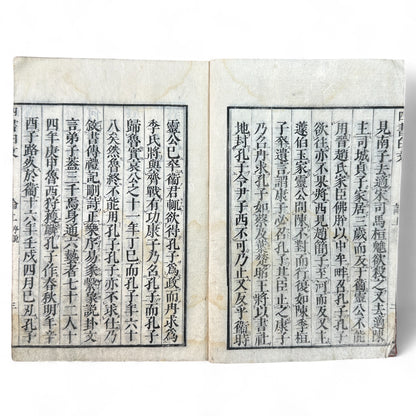 見南子去適宋司馬桓魋欲殺之又去適陳
主司城貞子家居三歲而反于衞靈公不能
用晉趙氏家臣佛肸以中牟畔召孔子孔子
欲往亦不果將西見趙簡子至河而反又主
蘧伯玉家靈公問陳不對而行復如陳季桓
子卒遺言謂康子必召孔子其臣止之康子
乃召冉求孔子如蔡及葉楚昭王將以書社
地封孔子令尹子西不可乃止又反乎衞時
靈公已卒衞君輒欲得孔子爲政而冉求爲
季氏將與齊戰有功康子乃召孔子而孔子
歸魯實哀公之十一年丁巳而孔子年六十
八矣然魯終不能用孔子孔子亦不求仕乃
敘書傳禮記刪詩正樂序易彖繫象說卦文
言弟子蓋三千焉身通六藝者七十二人十
四年庚申魯西狩獲麟孔子作春秋明年辛
酉子路死於衞十六年壬戌四月己丑孔子
四書 文 論 序說 三